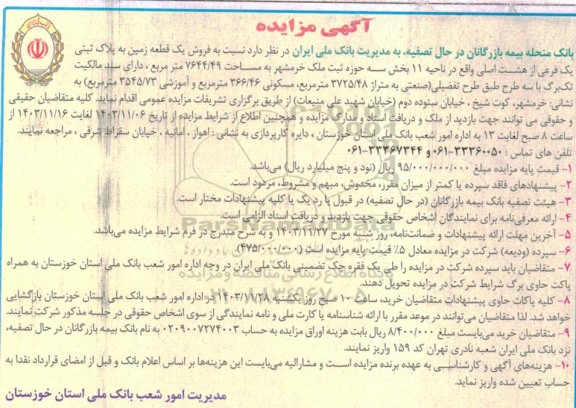 آگهی مزایده
بانک منحله بیمه بازرگانان در حال تصفیه، به مدیریت بانک ملی ایران در نظر دارد نسبت به فروش یک قطعه زمین به پلاک ثبتی
یک فرعی از هشت اصلی واقع در ناحیه ۱۱ بخش سه حوزه ثبت ملک خرمشهر به مساحت ۷۶۴۴/۴۹ متر مربع ، دارای سند مالکیت
تک‌برگ با سه طرح طبق طرح تفصیلی(صنعتی به متراژ ۳۷۲۵/۴۸ مترمربع، مسکونی ۳۶۶/۴۶ مترمربع و آموزشی ۳۵۴۵/۷۳ مترمربع) به
نشانی: خرمشهر، کوت شیخ ، خیابان ستوده دوم (خیابان شهید علی منیعات) از طریق برگزاری تشریفات مزایده عمومی اقدام نماید. کلیه متقاضیان حقیقی
و حقوقی می توانند جهت بازدید از ملک و دریافت اسناد و مدارک مزایده و همچنین اطلاع از شرایط مزایده از تاریخ ۱۴۰۳/۱۱/۰۶ لغایت ۱۴۰۳/۱۱/۱۶
از ساعت ۸ صبح لغایت ۱۳ به اداره امور شعب بانک ملی استان خوزستان ، دایره کارپردازی به نشانی : اهواز ، امانیه ، خیابان سقراط شرقی ، مراجعه نمایند.
تلفن های تماس : ۳۳۳۶۰۰۵۰-۰۶۱ و ۳۳۳۶۷۳۴۴-۰۶۱
۱- قیمت پایه مزایده مبلغ ۹۵/۰۰۰/۰۰۰/۰۰۰ ریال (نود و پنج میلیارد ریال) می‌باشد.
۲- پیشنهادهای فاقد سپرده یا کمتر از میزان مقرر، مخدوش، مبهم و مشروط، مردود است.
۳- هیئت تصفیه بانک بیمه بازرگانان (در حال تصفیه) در قبول یا رد یک یا کلیه پیشنهادات مختار است.
۴- ارائه معرفی‌نامه برای نمایندگان اشخاص حقوقی جهت بازدید و دریافت اسناد الزامی است.
۵- آخرین مهلت ارائه پیشنهادات و ضمانت‌نامه، روز شنبه مورخ ۱۴۰۳/۱۱/۲۷ و به شرح مندرج در فرم شرایط مزایده می‌باشد.
۶- سپرده (ودیعه) شرکت در مزایده معادل ۵٪ قیمت پایه مزایده است (۴۷۵/۰۰۰/۰۰۰)
۷- متقاضیان باید سپرده شرکت در مزایده را طی یک فقره چک تضمینی بانک ملی ایران در وجه اداره امور شعب بانک ملی استان خوزستان به همراه
پاکت حاوی برگ شرایط شرکت در مزایده تحویل دهند.
۸- کلیه پاکات حاوی پیشنهادات متقاضیان خرید، ساعت ۱۰ صبح روز یکشنبه ۱۴۰۳/۱۱/۲۸ در اداره امور شعب بانک ملی استان خوزستان بازگشایی
خواهد شد. لذا متقاضیان می‌توانند در موعد مقرر با ارائه شناسنامه یا کارت ملی و نامه نمایندگی از سوی اشخاص حقوقی در جلسه مذکور شرکت نمایند.
۹- متقاضیان خرید می‌بایست مبلغ ۸/۴۰۰/۰۰۰ ریال بابت هزینه اوراق مزایده به حساب ۰۲۰۹۰۰۷۲۷۴۰۰۳ به نام بانک بیمه بازرگانان در حال تصفیه،
نزد بانک ملی ایران شعبه نادری تهران کد ۱۵۹ واریز نمایند.
۱۰- هزینه‌های آگهی و کارشناسی به عهده برنده مزایده است و مشارالیه می‌بایست این هزینه‌ها بر اساس اعلام بانک و قبل از امضای قرارداد نقدا به
حساب تعیین شده واریز نماید.
مدیریت امور شعب بانک ملی استان خوزستان